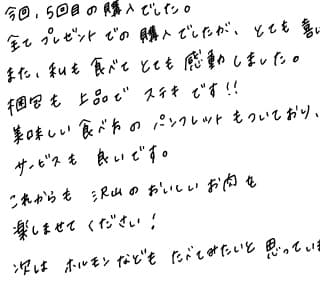 今回、5回目の購入でした。
全てプレゼントでの購入でしたが、とても喜
また、私も食べてとても感動しました。
梱包も上品でステキです!!
美味しい食べ方のパンフレットもついており、
サービスも良いです。
これからも沢山のおいしいお肉を
楽しませてください!
次はホルモンなどもたべてみたいと思ってい